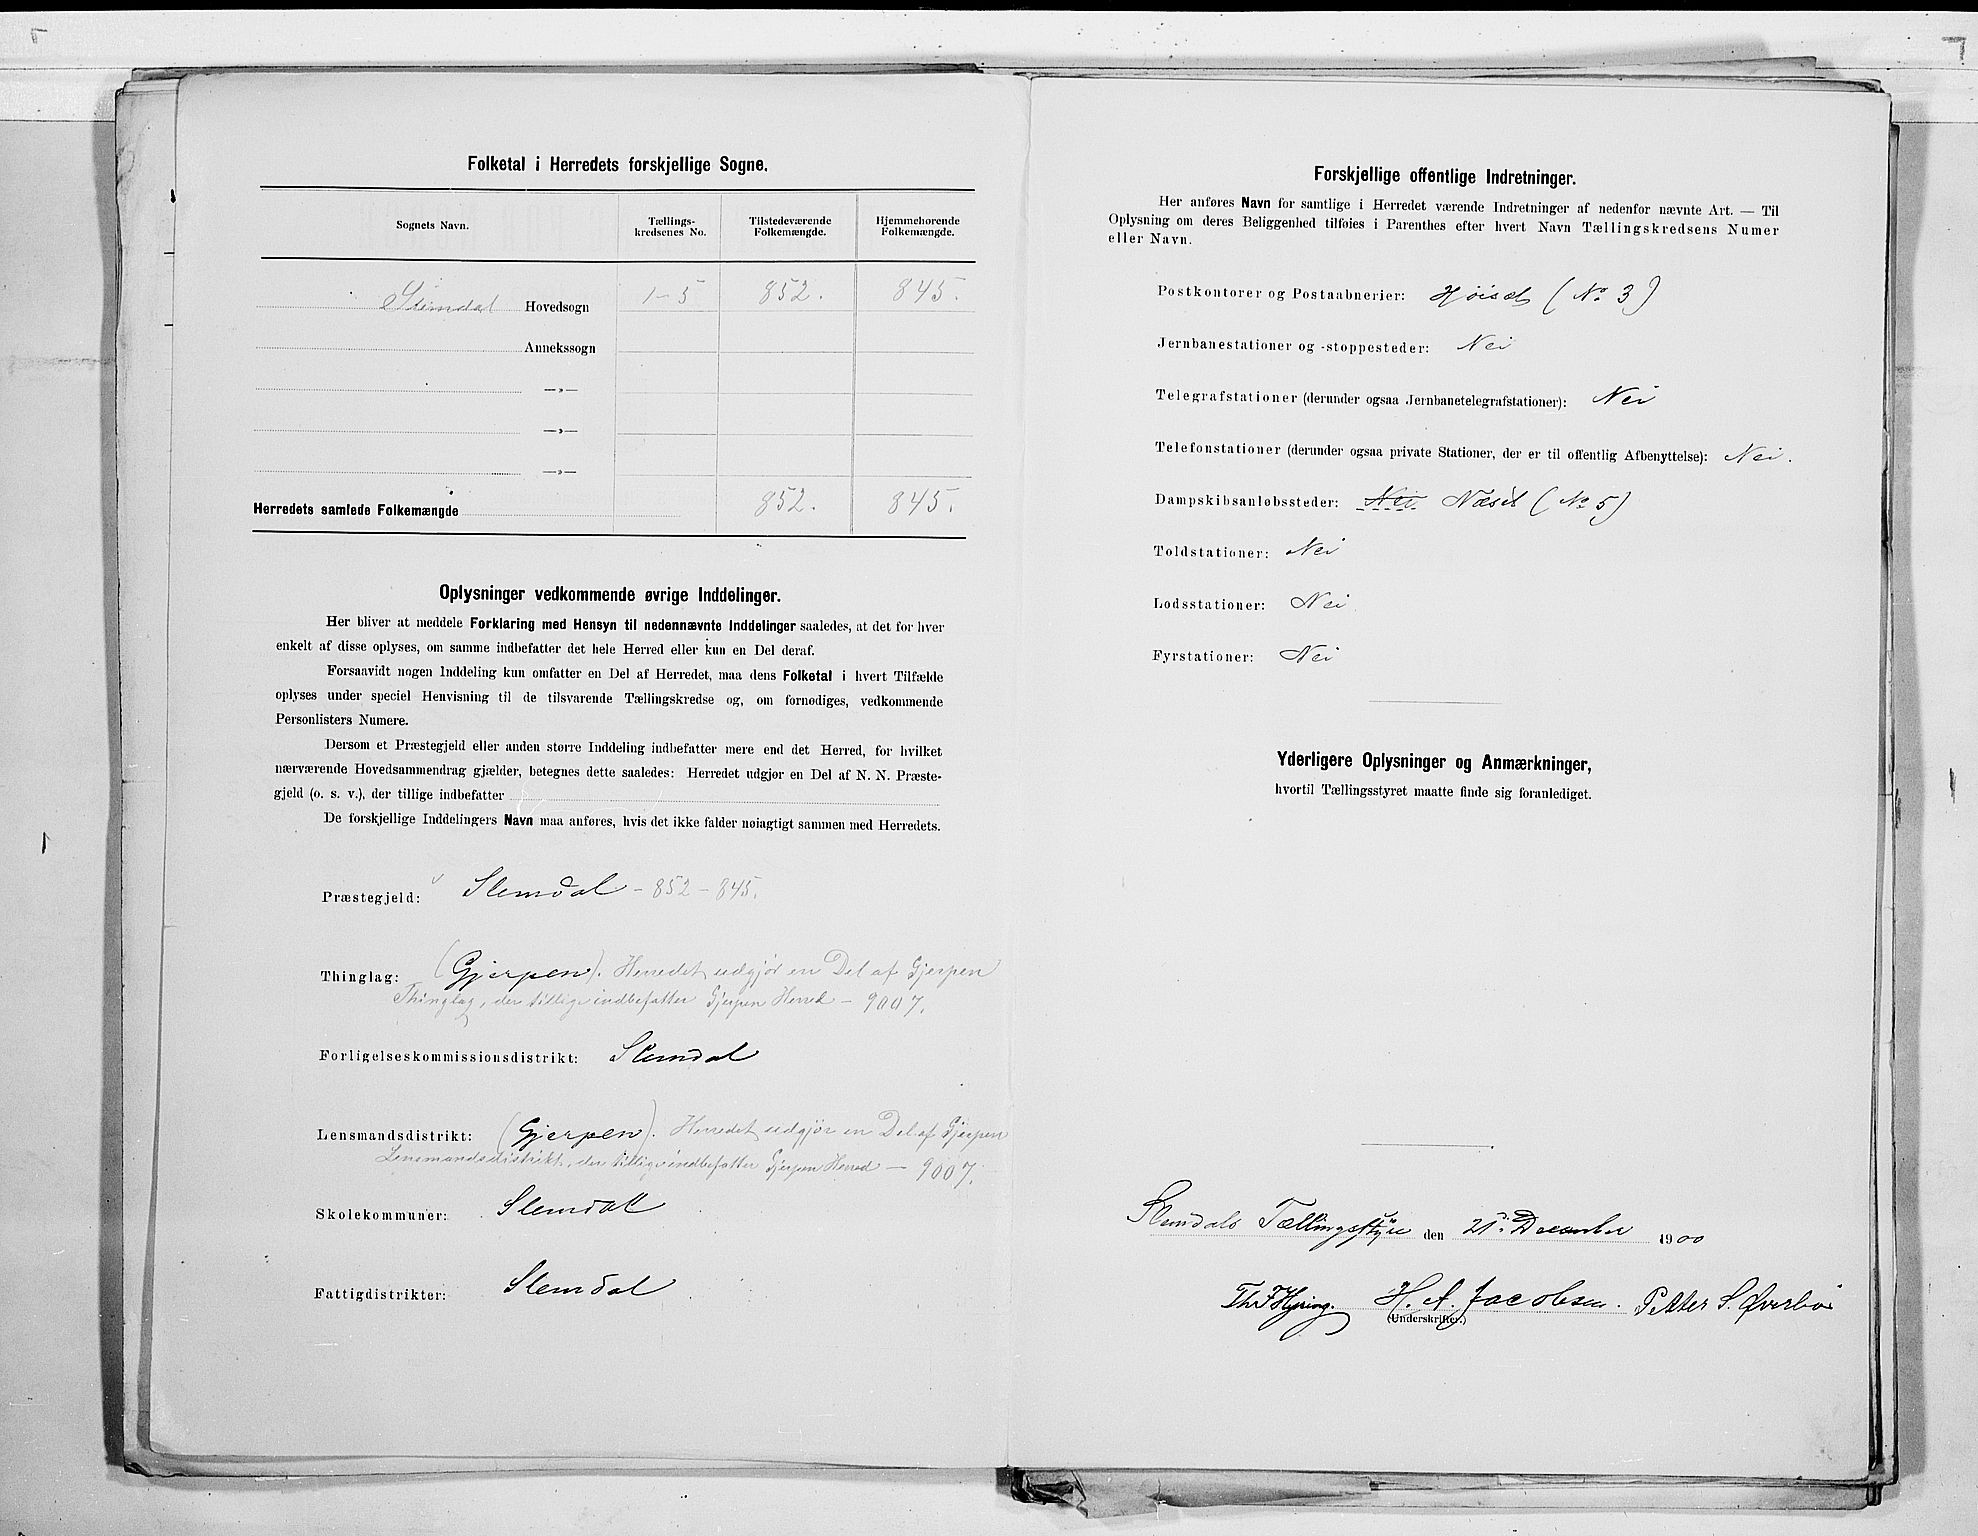 Folketal i Herredets forskjellige Sogne.
Sognets Navn. Tællings-kredsenes No. Tilstedeværende Folkemængde. Hjemmehørende Folkemængde.
Slemdal Hovedsogn 1-5 852. 845.
Annekssogn
—»—
—»—
—»—
Herredets samlede Folkemængde 852. 845.
Oplysninger vedkommende øvrige Inddelinger.
Her bliver at meddele Forklaring med Hensyn til nedennævnte Inddelinger saaledes, at det for hver
enkelt af disse oplyses, om samme indbefatter det hele Herred eller kun en Del deraf.
Forsaavidt nogen Inddeling kun omfatter en Del af Herredet, maa dens Folketal i hvert Tilfælde
oplyses under speciel Henvisning til de tilsvarende Tællingskredse og, om fornødiges, vedkommende
Personlisters Numere.
Dersom et Præstegjeld eller anden større Inddeling indbefatter mere end det Herred, for hvilket
nærværende Hovedsammendrag gjælder, betegnes dette saaledes: Herredet udgjør en Del af N. N. Præste-
gjeld (o. s. v.), der tillige indbefatter
De forskjellige Inddelingers Navn maa anføres, hvis det ikke falder nøiagtigt sammen med Herredets.
Præstegjeld: Slemdal - 852 - 845.
Thinglag: (Gjerpen). Herredet udgjør en Del af Gjerpen
Thinglag, der tillige indbefatter Gjerpen Herred - 9007.
Forligelseskommissionsdistrikt: Slemdal
Lensmandsdistrikt: (Gjerpen). Herredet udgjør en Del af Gjerpen
Lensmandsdistrikt, der tillige indbefatter Gjerpen Herred - 9007.
Skolekommuner: Slemdal
Fattigdistrikter: Slemdal
Forskjellige offentlige Indretninger.
Her anføres Navn for samtlige i Herredet værende Indretninger af nedenfor nævnte Art. — Til
Oplysning om deres Beliggenhed tilføies i Parenthes efter hvert Navn Tællingskredsens Numer
eller Navn.
Postkontorer og Postaabnerier: Høiset (No 3)
Jernbanestationer og -stoppesteder: Nei
Telegrafstationer (derunder ogsaa Jernbanetelegrafstationer): Nei
Telefonstationer (derunder ogsaa private Stationer, der er til offentlig Afbenyttelse): Nei.
Dampskibsanløbssteder: Nei Næset (No 5)
Toldstationer: Nei
Lodsstationer: Nei
Fyrstationer: Nei
Yderligere Oplysninger og Anmærkninger,
hvortil Tællingsstyret maatte finde sig foranlediget.
Slemdals Tællingsstyre den 21. December 1900
H. A. Jacobsen. Petter S. Øverbø
(Underskrifter.)